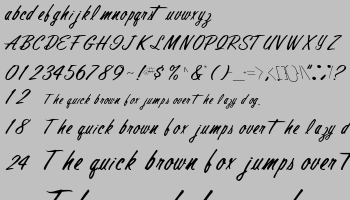 abcdefghijklmnopqrstuvwxyz
ABCDEFGHIJKLMNOPQRSTUVWXYZ
0123456789~!#$%^&*()-_=+>,<[]{}\|";:'/?
12 The quick brown fox jumps over the lazy dog.
18 The quick brown fox jumps over the lazy d
24 The quick brown fox jumps over